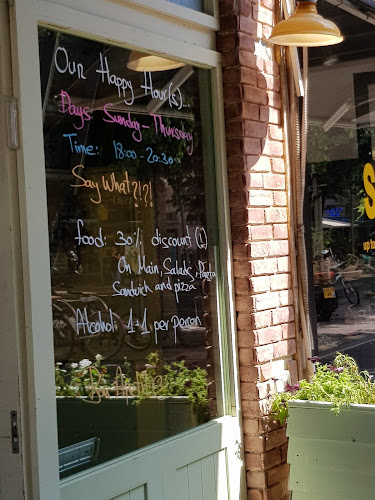 Our Happy Hour(s)...
Days: Sunday - Thursday
Time: 18:00 - 20:30
Say What?!?!
food: 30% discount (!)
On Main, Salads, Pasta
Sandwich and pizza
Alcohol: 1+1 per person
S
up to